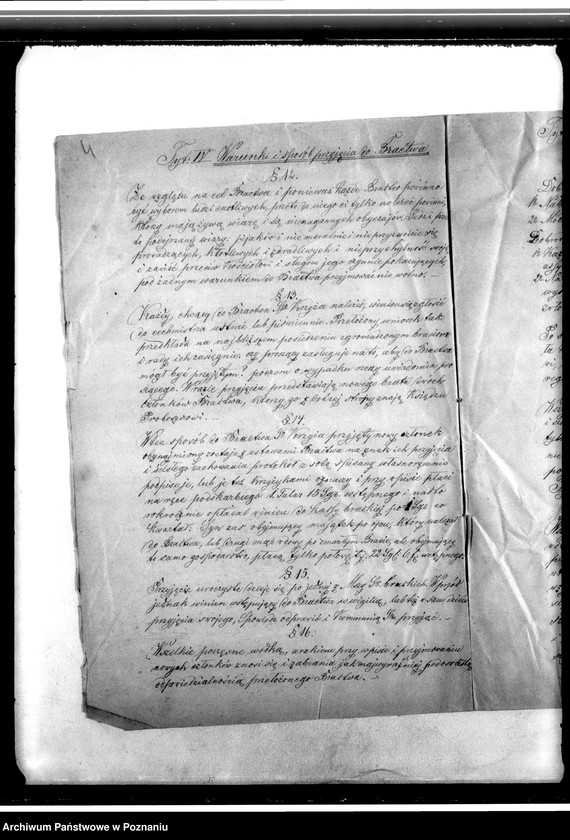 4
Tyt. IV Warunki i sposób przyjęcia do Bractwa.
§ 12.
Ze względu na cel Bractwa i ponieważ każde Bractwo powinno
być wyborem ludzi cnotliwych, przeto do niego ci tylko należeć powinni,
którzy mają żywą wiarę i są nienagannych obyczajów. Ludzi prze-
to podejrzanej wiary, pijaków i niemoralnie i nieprzyzwoicie się
prowadzących, kłótliwych i zdradliwych i nieprzychylność swoją
i zawiść przeciw Kościołowi i sługom jego czynnie pokazujących,
pod żadnym warunkiem do Bractwa przyjmować nie wolno.
§ 13.
Każdy, chcący do Bractwa Śgo Krzyża należeć, winien się zgłosić
do cechmistrza ustnie lub piśmiennie. Przełożony wniosek taki
przedkłada na najbliższem posiedzeniu zgromadzonym braciom
i radzy ich zasięgnie czy proszący zasługuje na to, aby do Bractwa
mógł być przyjętym? poczem o wypadku rady uwiadomia pro-
szącego. W razie przyjęcia przedstawiają nowego brata dwóch
członków Bractwa, którzy go z bliżej strony znają Księdzu
Proboszczowi.
§ 14.
W ten sposób do Bractwa Śo Krzyża przyjęty nowy członek
obznajmiony zostaje z ustawami Bractwa na znak ich przyjęcia
i ścisłego zachowania protokół z sobą spisany własnoręcznie
podpisuje, lub je też krzyżykami oznaczy i przy wpisie płaci
na ręce podskarbiego 1. Talar 15 Sgr. wstępnego i nadto
rokrocznie opłacać winien do kassy brackiej po 1 Sgr. co
Kwartał. Syn zaś obejmujący majątek po ojcu, który należał
do Bractwa, lub drugi mąż wdowy po zmarłym Bracie, ale obejmujący
to samo gospodarstwo, płacą tylko połowę t. j. 22 Sgr. 6 f. wstępnego.
§ 15.
Przyjęcie uroczyste dzieje się po jednej z Mszy Śtej brackich. Wprzód
jednak winien wstępujący do Bractwa w wigilią, lub też w sam dzień
przyjęcia swojego, Spowiedź odprawić i Kommunią Śtą przyjąć. —
§ 16.
Wszelkie poczesne wódką, arakiem przy wpisie i przyjmowaniu
nowych członków znosi się i zabrania jak najwyraźniej pod osobistą
odpowiedzialnością przełożonego Bractwa. —
Archiwum Państwowe w Poznaniu